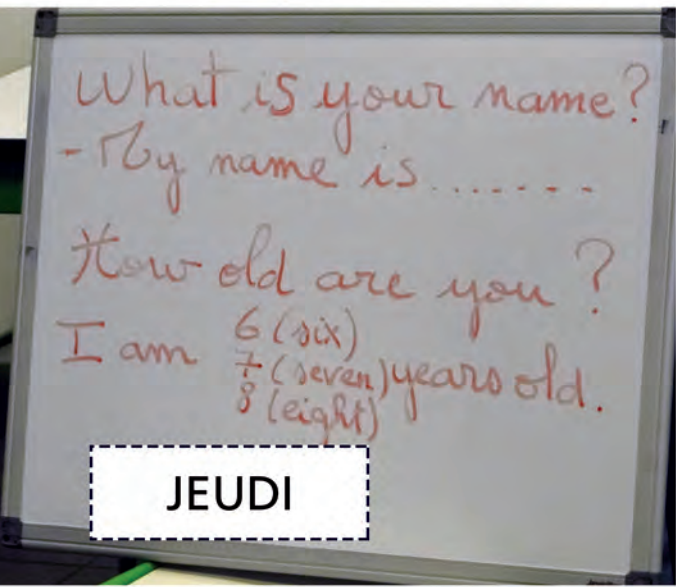 What is your name?
- My name is .......
How old are you?
I am 6 (six)
7 (seven) years old.
8 (eight)
JEUDI